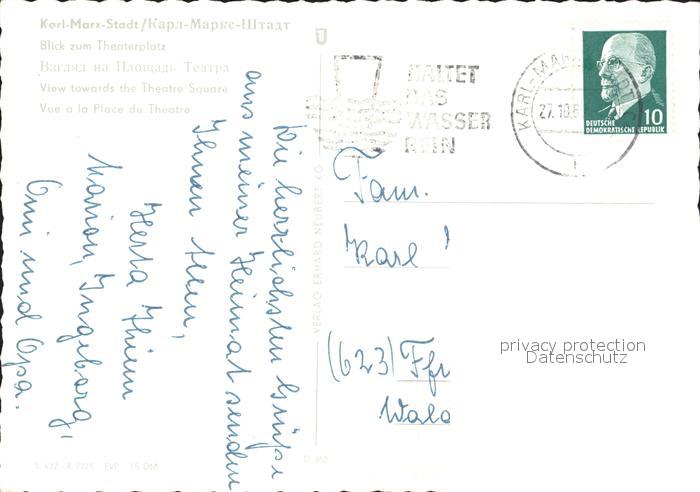 Karl-Marx-Stadt/Карл-Маркс-Штадт
Blick zum Theaterplatz
Взгляд на Площадь Театра
View towards the Theatre Square
Vue a la Place du Theatre
HALTET
DAS
WASSER
REIN
KARL-MARX-STADT
27.10.6
DEUTSCHE
DEMOKRATISCHE REPUBLIK
10
Die herzlichsten Grüße
aus meiner Heimat senden
Ihnen allen,
Herta Thiem
Marion, Ingeborg,
Omi und Opa.
VERLAG ERHARD NEUBERT KG
Fam.
Karl
(623) Ffr
Wald
privacy protection
Datenschutz
S 422 A 7775 EVP 15 DM
D 350